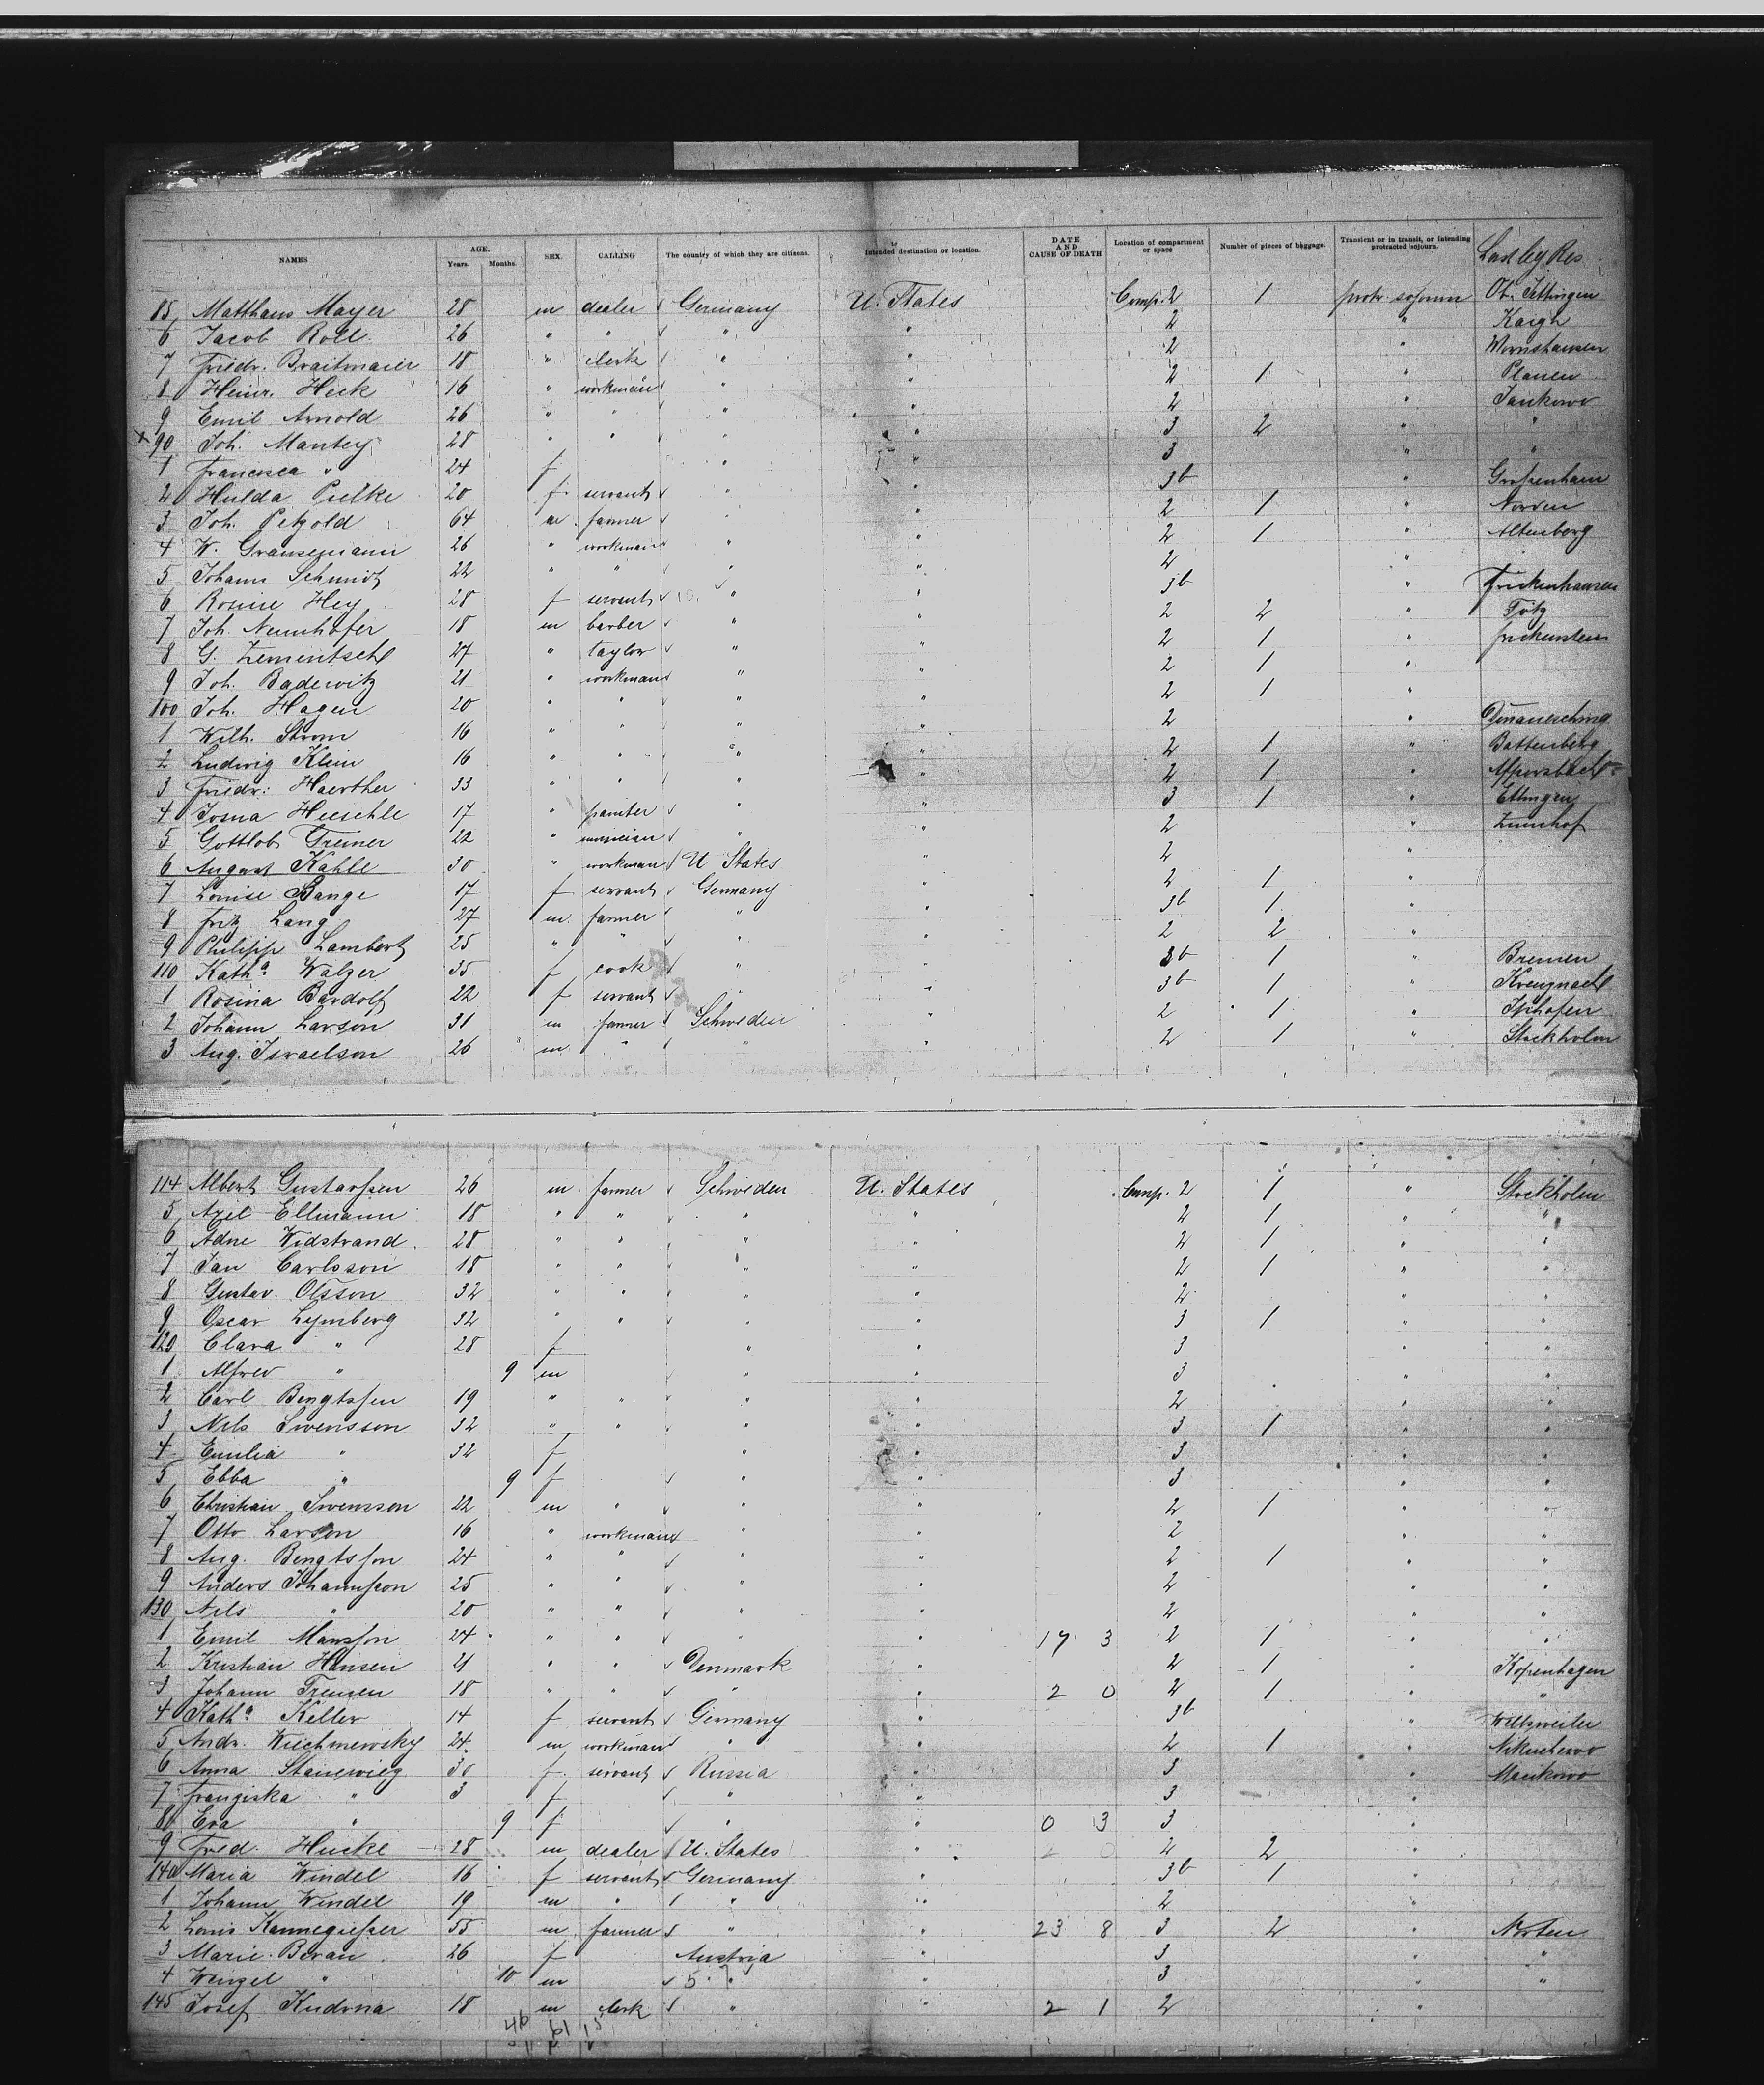 NAMES AGE. Years. Months. SEX. CALLING The country of which they are citizens. Intended destination or location. DATE AND CAUSE OF DEATH Location of compartment or space Number of pieces of baggage. Transient or in transit, or intending protracted sojourn.
85 Matthaus Mayer 28 m dealer Germany U. States Comp. 2 1 protr. sojourn
6 Jacob Roll 26 " " " " 2 "
7 Friedr. Braitmaier 18 " clerk " " 2 "
8 Heinr. Heck 16 " workman " " 2 1 " Planen
9 Emil Arnold 26 " " " " 2 " Jankowo
x 90 Joh. Mantey 28 " " " " 3 2 " "
1 Francisca " 24 f " " 3 " "
2 Hulda Pielke 20 f servant " " 3b "
3 Joh. Petzold 64 m farmer " " 2 1 "
4 W. Gransemann 26 " workman " " 2 1 " Altenberg
5 Johann Schmidt 22 " " " " 2 "
6 Rosine Hey 28 f servant " " 3b " Frickenhausen
7 Joh. Neunhofer 18 m barber " " 2 2 "
8 G. 27 " taylor " " 2 1 "
9 Joh. Badewitz 21 " workman " " 2 1 "
100 Joh. Hagen 20 " " " " 2 1 "
1 Wilh. Strom 16 " " " " 2 "
2 Ludwig Klein 16 " " " " 2 1 " Battenberg
3 Friedr. Haerther 33 " " " " 2 1 "
4 17 " painter " " 3 1 " Ettingen
5 Gottlob Greiner 22 " musician " " 2 "
6 August Kahle 30 " workman U States " 2 "
7 Louise Bange 17 f servant Germany " 2 1 "
8 Fritz Lang 27 m farmer " " 3b 1 "
9 Philipp Lambert 25 " " " " 2 2 "
110 Katha Walzer 35 f cook " " 3b 1 " Bremen
1 Rosina Bardolf 22 f servant " " 3b 1 Kreuznach
2 Johann Larson 31 m farmer Schweden " 2 1 " Iphofen
3 Aug. Israelson 26 m " " " 2 1 " Stockholm
114 Albert Gustafssen 26 m farmer Schweden U. States Comp. 2 1 " Stockholm
5 Axel Ellmann 18 " " " " 2 1 " "
6 Adne Widstrand 28 " " " " 2 1 " "
7 Jan Carlsson 18 " " " " 2 1 " "
8 Gustav Olsson 32 " " " " 2 " "
9 Oscar Lymberg 32 " " " " 3 1 " "
120 Clara " 28 f " " 3 " "
1 Alfred " 9 m " " 3 " "
2 Carl Bengtssen 19 " " " " 2 " "
3 Nils Swensson 32 " " " " 3 1 " "
4 Emilia " 32 f " " 3 " "
5 Ebba " 9 f " " 3 " "
6 Christian Swensson 22 m " " " 2 1 " "
7 Otto Larson 16 " workman " " 2 " "
8 Aug. Bengtsson 24 " " " " 2 1 " "
9 Anders Johannsson 25 " " " " 2 " "
130 Nils " 20 " " " " 2 " "
1 Emil Mansson 24 " " " " 17 3 2 1 " "
2 Kristian Hansen 21 " " Denmark " 2 1 " Kopenhagen
3 Johann Trensen 18 " " " " 2 0 2 1 " "
4 Katha Keller 14 f servant Germany " 3b "
5 Andr. 24 m workman " " 2 1 "
6 Anna 30 f servant Russia " 3 "
7 Franziska " 3 f " " 3 "
8 Eva " 9 f " " 0 3 3 "
9 Fred. Hucke 28 m dealer U. States " 2 0 2 2
140 Maria Windel 16 f servant Germany " 3b 1
1 Johann Windel 19 m " " " 2 "
2 Louis Kannegiesser 55 m farmer " " 23 8 3 2 " Norten
3 Marie Beran 26 f Austria " 3 " "
4 Wenzel " 10 m 5.7. " 3 " "
145 Josef Kudrna 18 m clerk " " 2 1 2 "
46 61 15